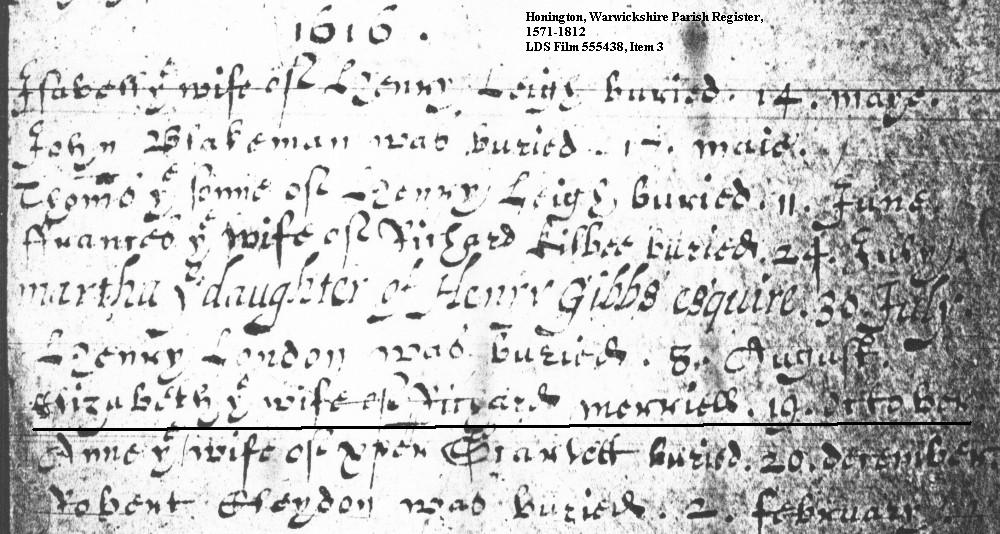 1616.
Honington, Warwickshire Parish Register,
1571-1812
LDS Film 555438, Item 3
Isabell ye wife of Henry Leigh buried. 14. maye.
John Blakeman was buried. 17. maie.
Thomas ye sonne of Henry Leigh buried. 11. June.
ffrances ye wife of Richard Kilbee buried. 24. July.
martha ye daughter of Henry Gibbs esquire. 30. July
Henry London was buried. 8. August.
Elizabeth ye wife of Richard merriell. 19. october
Anne ye wife of xpofer buried. 20. december.
Robert Cleydon was buried. 2. february.